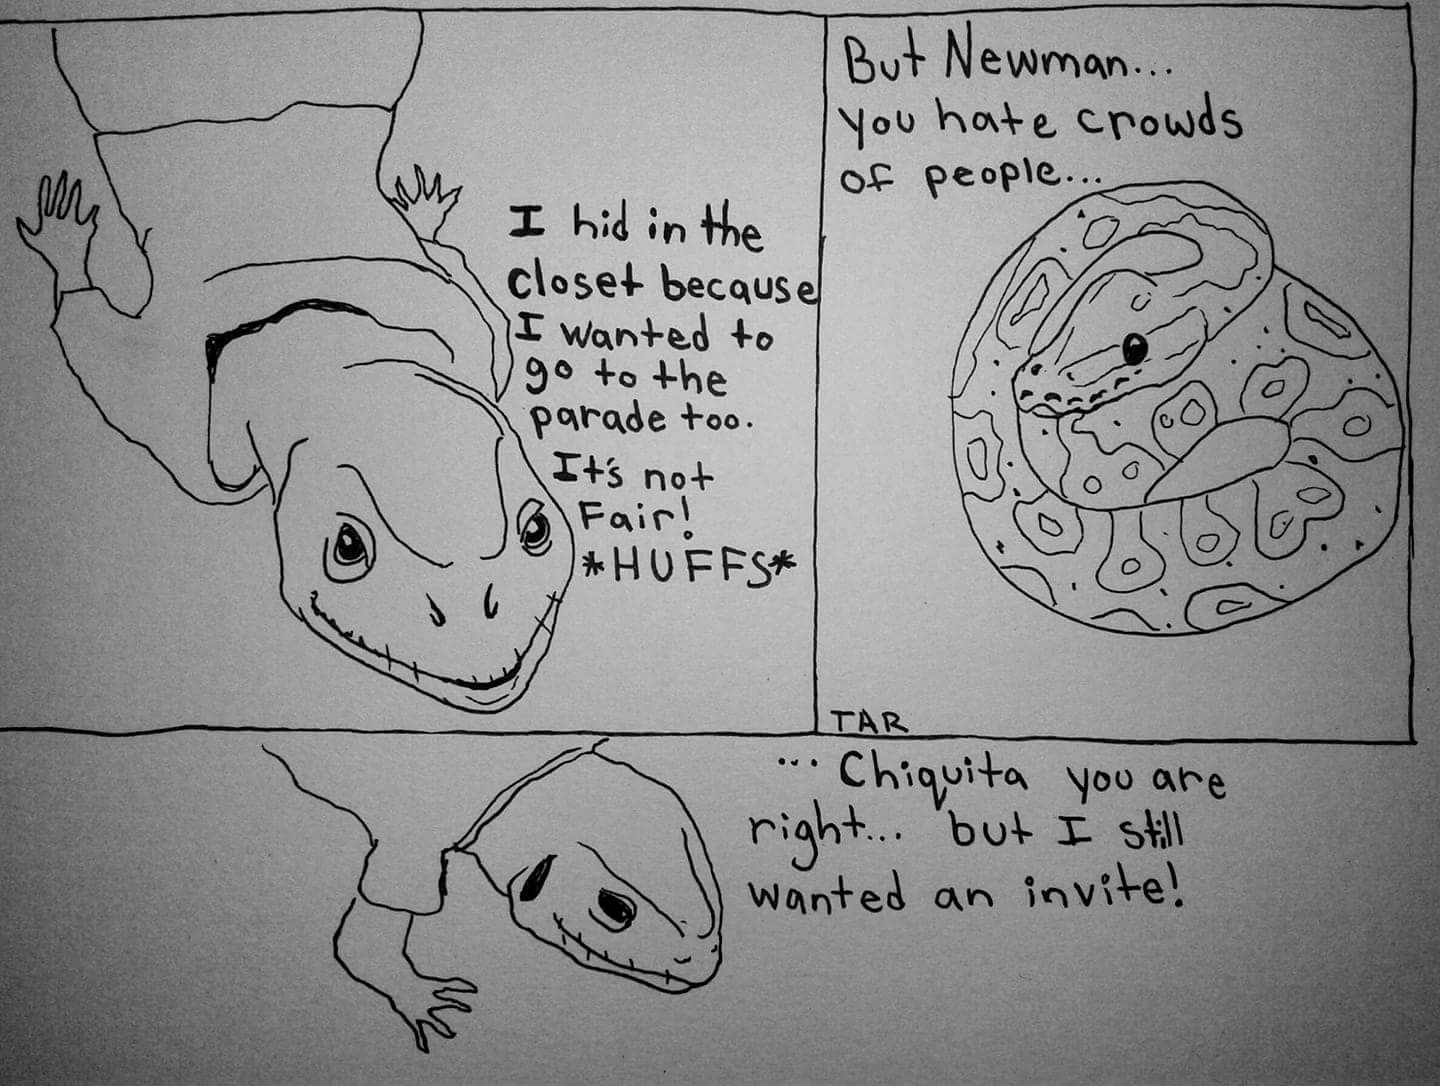 I hid in the
closet because
I wanted to
go to the
parade too.
It's not
Fair!
*HUFFS*
But Newman...
you hate crowds
of people...
TAR
... Chiquita you are
right... but I still
wanted an invite!